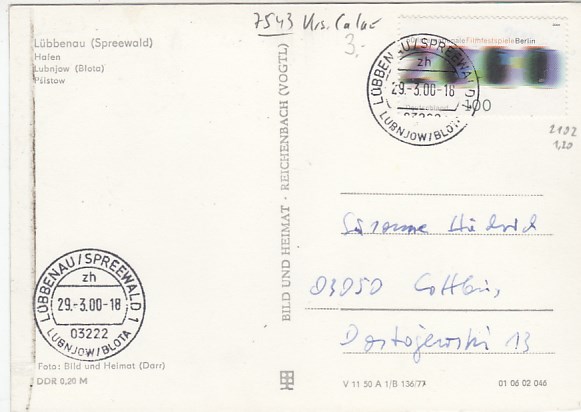 Lübbenau (Spreewald)
Hafen
Lubnjow (Błota)
Pśistow
7543
3.-
Filmfestspiele Berlin
Deutschland
100
LÜBBENAU/SPREEWALD
zh
29.-3.00-18
03222
LUBNJOW/BLOTA
2102
1,20
BILD UND HEIMAT · REICHENBACH (VOGTL)
03050 Cottbus,
Dostojewski 13
LÜBBENAU/SPREEWALD 1
zh
29.-3.00-18
03222
LUBNJOW/BLOTA
Foto: Bild und Heimat (Darr)
DDR 0,20 M
V 11 50 A 1/B 136/77
01 06 02 046